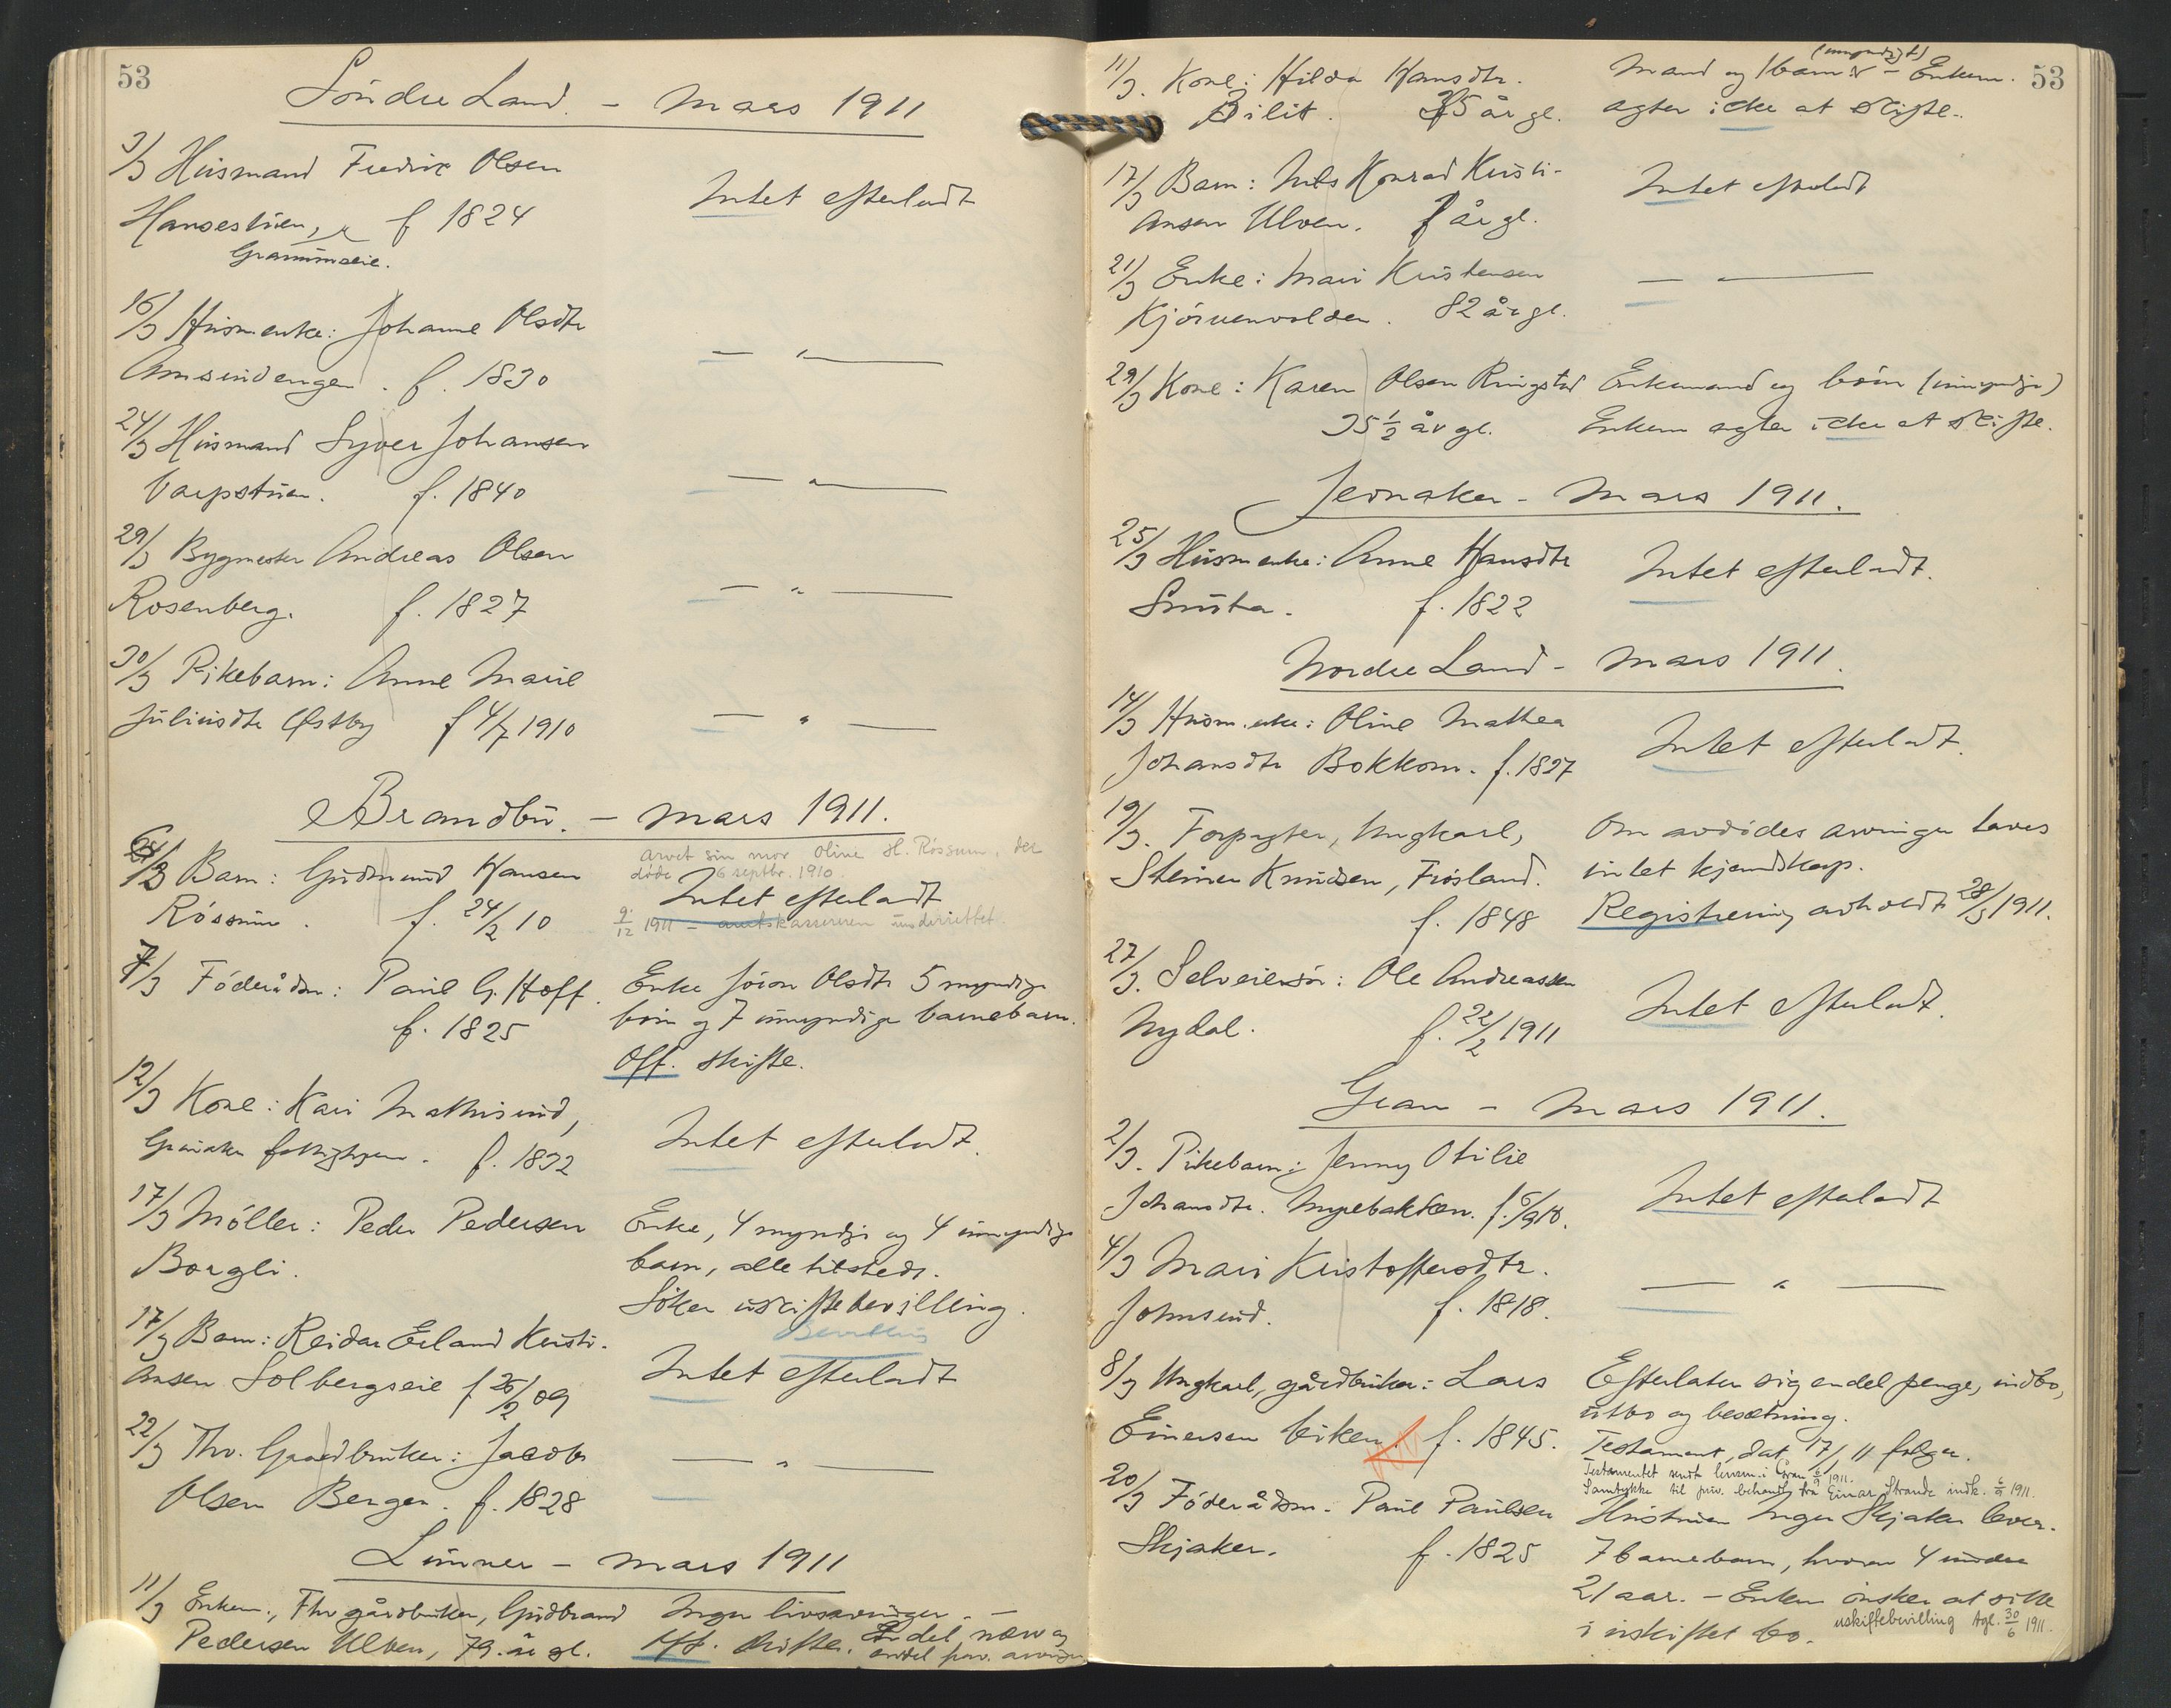 53
Söndre Land. - Mars 1911
3/3 Husmand Fredrik Olsen
Hansestuen, f 1824
Intet efterladt
16/3 Husm.enke: Johanne Olsdtr
f. 1830
— " —
24/3 Husmand Syver Johansen
Varpstuen. f. 1840
— " —
29/3 Bygmester Andreas Olsen
Rosenberg. f. 1827
— " —
30/3 Pikebarn: Anne Marie
Juliusdtr Østby f 4/7 1910
— " —
Brandbu. - Mars 1911.
Barn: Gudmund Hansen
Røssum. f. 24/2 10
arvet sin mor Oline H. Røssum, der
døde 6 septbr. 1910.
Intet efterladt
9/12 1911 - amtskassereren underrettet.
7/3 Föderådm: Paul G. Hoff.
f. 1825
Enke Jöron Olsdtr 5 myndige
börn og 7 umyndige barnebarn.
Off. skifte.
12/3 Kone: Kari Mathisrud,
f. 1832
Intet efterladt.
17/3 Möller: Peder Pedersen
Borgli.
Enke, 4 myndige og 4 umyndige
barn, alle tilstede.
Söker uskiftebevilling.
Bevilling
17/3 Barn: Reidar Erland Kristi-
ansen Solbergseie f 26/2 09
Intet efterladt
22/3 Fhv. Gaardbruker: Jacob
Olsen Bergen. f. 1828
— " —
Lunner - Mars 1911
11/3 Enkem., Fhv gårdbruker, Gudbrand
Pedersen Ulven, 79 år gl.
Ingen livsarvinger. -
Off. skifte. En del nærv og
endel frav. arvinger
53
11/3. Kone: Hilda Hansdtr.
Bilit. 35 år gl.
Mand og 1 barn (umyndigt) - Enkem.
agter icke at skifte.
17/3 Barn: Nils Konrad Kristi-
ansen Ulven. år gl.
Intet efterladt
21/3 Enke: Mari Kristensen
Kjörkenvolden. 82 år gl.
— " —
29/3 Kone: Karen Olsen Ringstad
35 1/2 år gl.
Enkemand og börn (umyndige)
Enkem agter icke at skifte.
Jevnaker - Mars 1911.
25/3 Husm enke: Anne Hansdtr
f. 1822
Intet efterladt.
Nordre Land - Mars 1911.
14/3 Husm.enke: Oline Mathea
Johansdtr Bokkom. f. 1827
Intet efterladt.
19/3. Forpagter, Ungkarl,
Steiner Knudsen, Frösland.
f. 1848
Om avdödes arvinger haves
intet kjendskap.
Registrering avholdt 28/3 1911.
27/3. Selveiersön: Ole Andreassen
Nydal. f. 22/2 1911
Intet efterladt.
Gran - Mars 1911.
2/3. Pikebarn: Jenny Otilie
Johansdtr. Myrebakken.
Intet efterladt
4/3 Mari Kristoffersdtr.
Johnsrud. f. 1818.
— " —
8/3 Ungkarl, gårdbruker: Lars
Einersen Viken. f. 1845.
Efterlater sig endel penge, indbo,
utbo og besætning.
Testament, dat. 17/1 11 følger.
Testamentet sendt lensm. i Gran 1911.
Samtykke til priv. behandlg fra Einar Strande indk. 1911.
20/3 Föderådsm. Paul Paulsen
Skjaker. f. 1825
Hustruen Inger Skjaker lever.
7 barnebarn, hvorav 4 under
21 aar. - Enken önsker at sitte
i uskiftet bo. uskiftebevilling Agl. 30/6 1911.